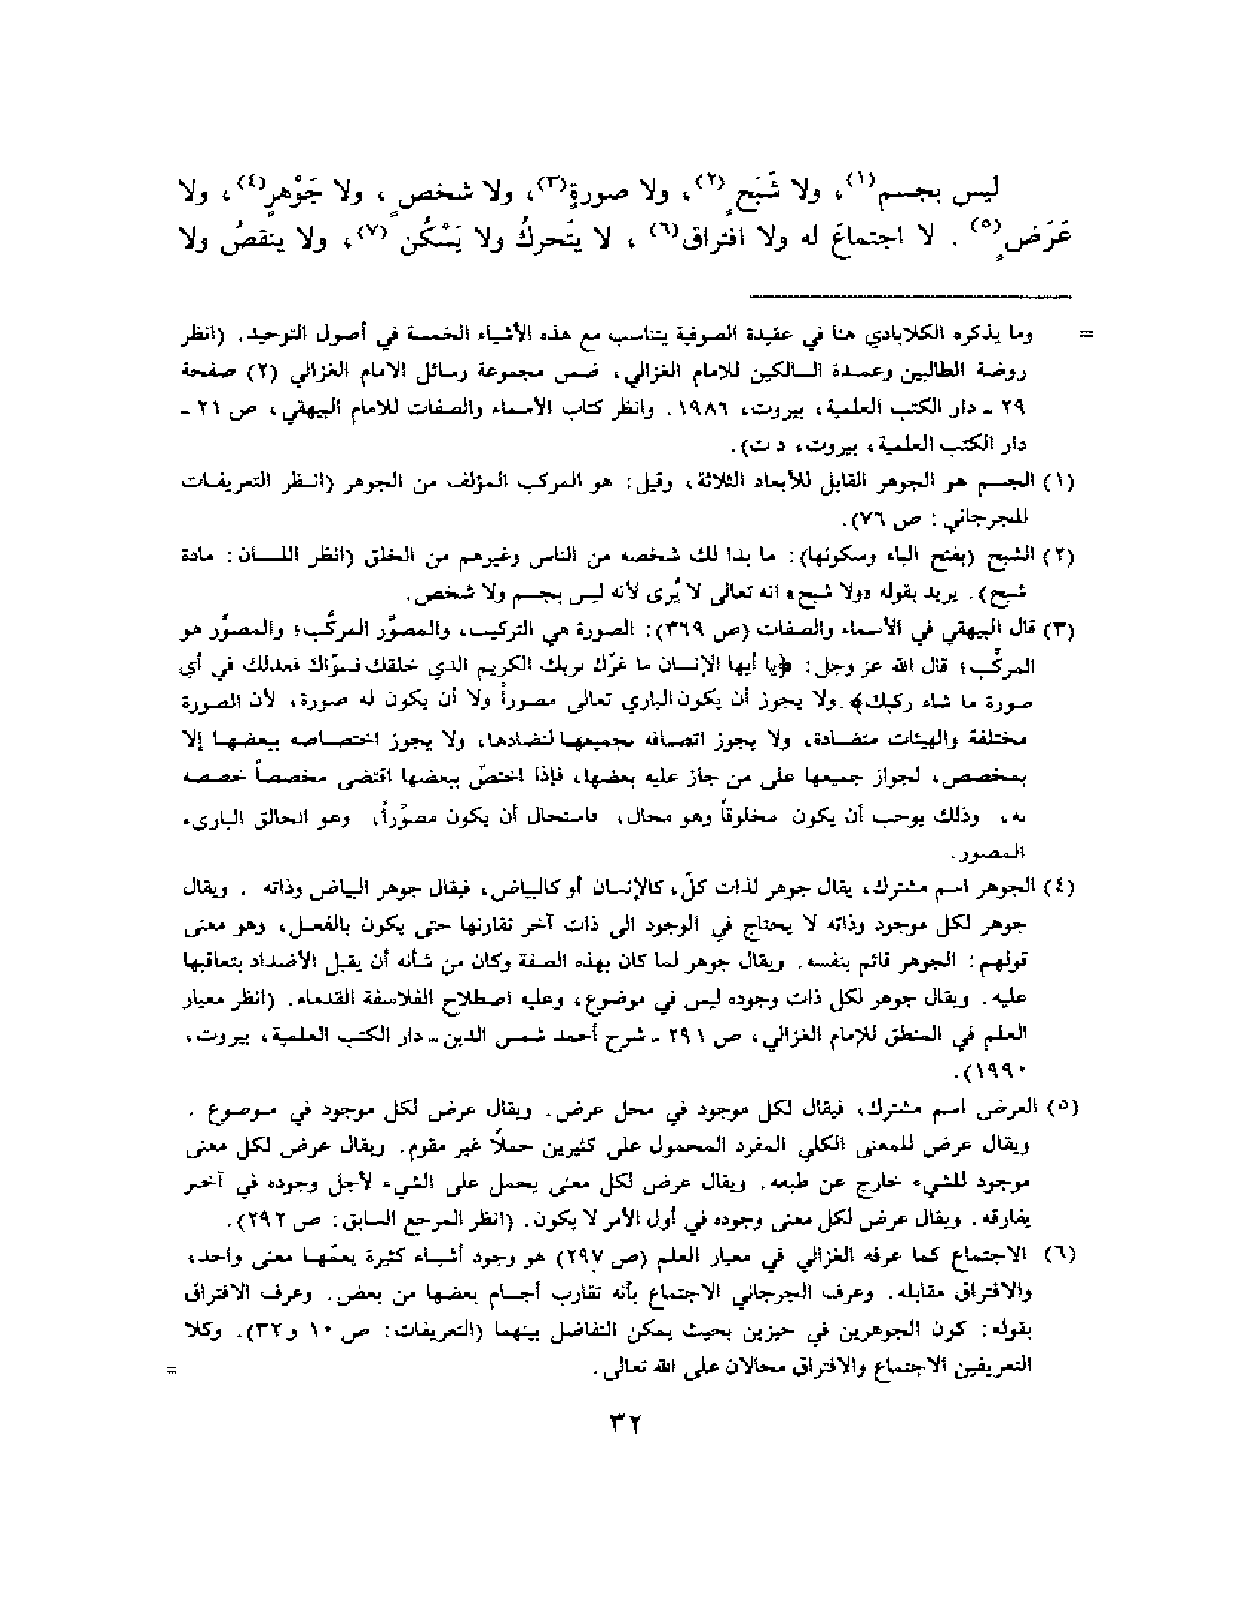 ليس بجسم(١)، ولا شَبَحٍ(٢)، ولا صورةٍ(٣)، ولا شخصٍ، ولا جَوْهرٍ(٤)، ولا
عَرَضٍ(٥). لا اجتماعَ له ولا افتراق(٦)، لا يتَحركُ ولا يَسْكُن(٧)، ولا ينقصُ ولا
= وما يذكره الكلاباذي هنا في عقيدة الصوفية يتناسب مع هذه الأشياء الخمسة في أصول التوحيد. (انظر
روضة الطالبين وعمدة السالكين للامام الغزالي، ضمن مجموعة رسائل الامام الغزالي (٢) صفحة
٢٩ - دار الكتب العلمية، بيروت، ١٩٨٦. وانظر كتاب الأسماء والصفات للامام البيهقي، ص ٢٦ -
دار الكتب العلمية، بيروت، د ت).
(١) الجسم هو الجوهر القابل للأبعاد الثلاثة، وقيل: هو المركب المؤلف من الجوهر (انظر التعريفات
للجرجاني: ص ٧٦).
(٢) الشبح (بفتح الباء وسكونها): ما بدا لك شخصه من الناس وغيرهم من الخلق (انظر اللسان: مادة
شبح). يريد بقوله «ولا شبح» انه تعالى لا يُرى لأنه ليس بجسم ولا شخص.
(٣) قال البيهقي في الأسماء والصفات (ص ٣٦٩): الصورة هي التركيب، والمصوَّر المركَّب؛ والمصوَّر هو
المركَّب؛ قال الله عز وجل: ﴿يا أيها الإنسان ما غرّك بربك الكريم الذي خلقك فسوّاك فعدلك في أي
صورة ما شاء ركبك﴾. ولا يجوز أن يكون الباري تعالى مصوراً ولا أن يكون له صورة، لأن الصورة
مختلفة والهيئات متضادة، ولا يجوز اتصافه بجميعها لتضادها، ولا يجوز اختصاصه ببعضها إلا
بمخصص، لجواز جميعها على من جاز عليه بعضها، فإذا اختصّ ببعضها اقتضى مخصصاً خصصه
به، وذلك يوجب أن يكون مخلوقاً وهو محال، فاستحال أن يكون مصوّراً، وهو الخالق الباريء
المصور.
(٤) الجوهر اسم مشترك، يقال جوهر لذات كلّ، كالإنسان أو كالبياض، فيقال جوهر البياض وذاته. ويقال
جوهر لكل موجود وذاته لا يحتاج في الوجود الى ذات آخر تقارنها حتى يكون بالفعل، وهو معنى
قولهم: الجوهر قائم بنفسه. ويقال جوهر لما كان بهذه الصفة وكان من شأنه أن يقبل الأضداد بتعاقبها
عليه. ويقال جوهر لكل ذات وجوده ليس في موضوع، وعليه اصطلاح الفلاسفة القدماء. (انظر معيار
العلم في المنطق للإمام الغزالي، ص ٢٩١ - شرح أحمد شمس الدين - دار الكتب العلمية، بيروت،
١٩٩٠).
(٥) العرض اسم مشترك، فيقال لكل موجود في محل عرض. ويقال عرض لكل موجود في موضوع.
ويقال عرض للمعنى الكلي المفرد المحمول على كثيرين حملاً غير مقوم. ويقال عرض لكل معنى
موجود للشيء خارج عن طبعه. ويقال عرض لكل معنى يحمل على الشيء لأجل وجوده في آخر
يفارقه. ويقال عرض لكل معنى وجوده في أول الأمر لا يكون. (انظر المرجع السابق: ص ٢٩٢).
(٦) الاجتماع كما عرفه الغزالي في معيار العلم (ص ٢٩٧) هو وجود أشياء كثيرة يعمّها معنى واحد،
والافتراق مقابله. وعرف الجرجاني الاجتماع بأنه تقارب أجسام بعضها من بعض. وعرف الافتراق
بقوله: كون الجوهرين في حيزين بحيث يمكن التفاضل بينهما (التعريفات: ص ١٠ و٣٢). وكلا
التعريفين الاجتماع والافتراق محالان على الله تعالى. =
٣٢